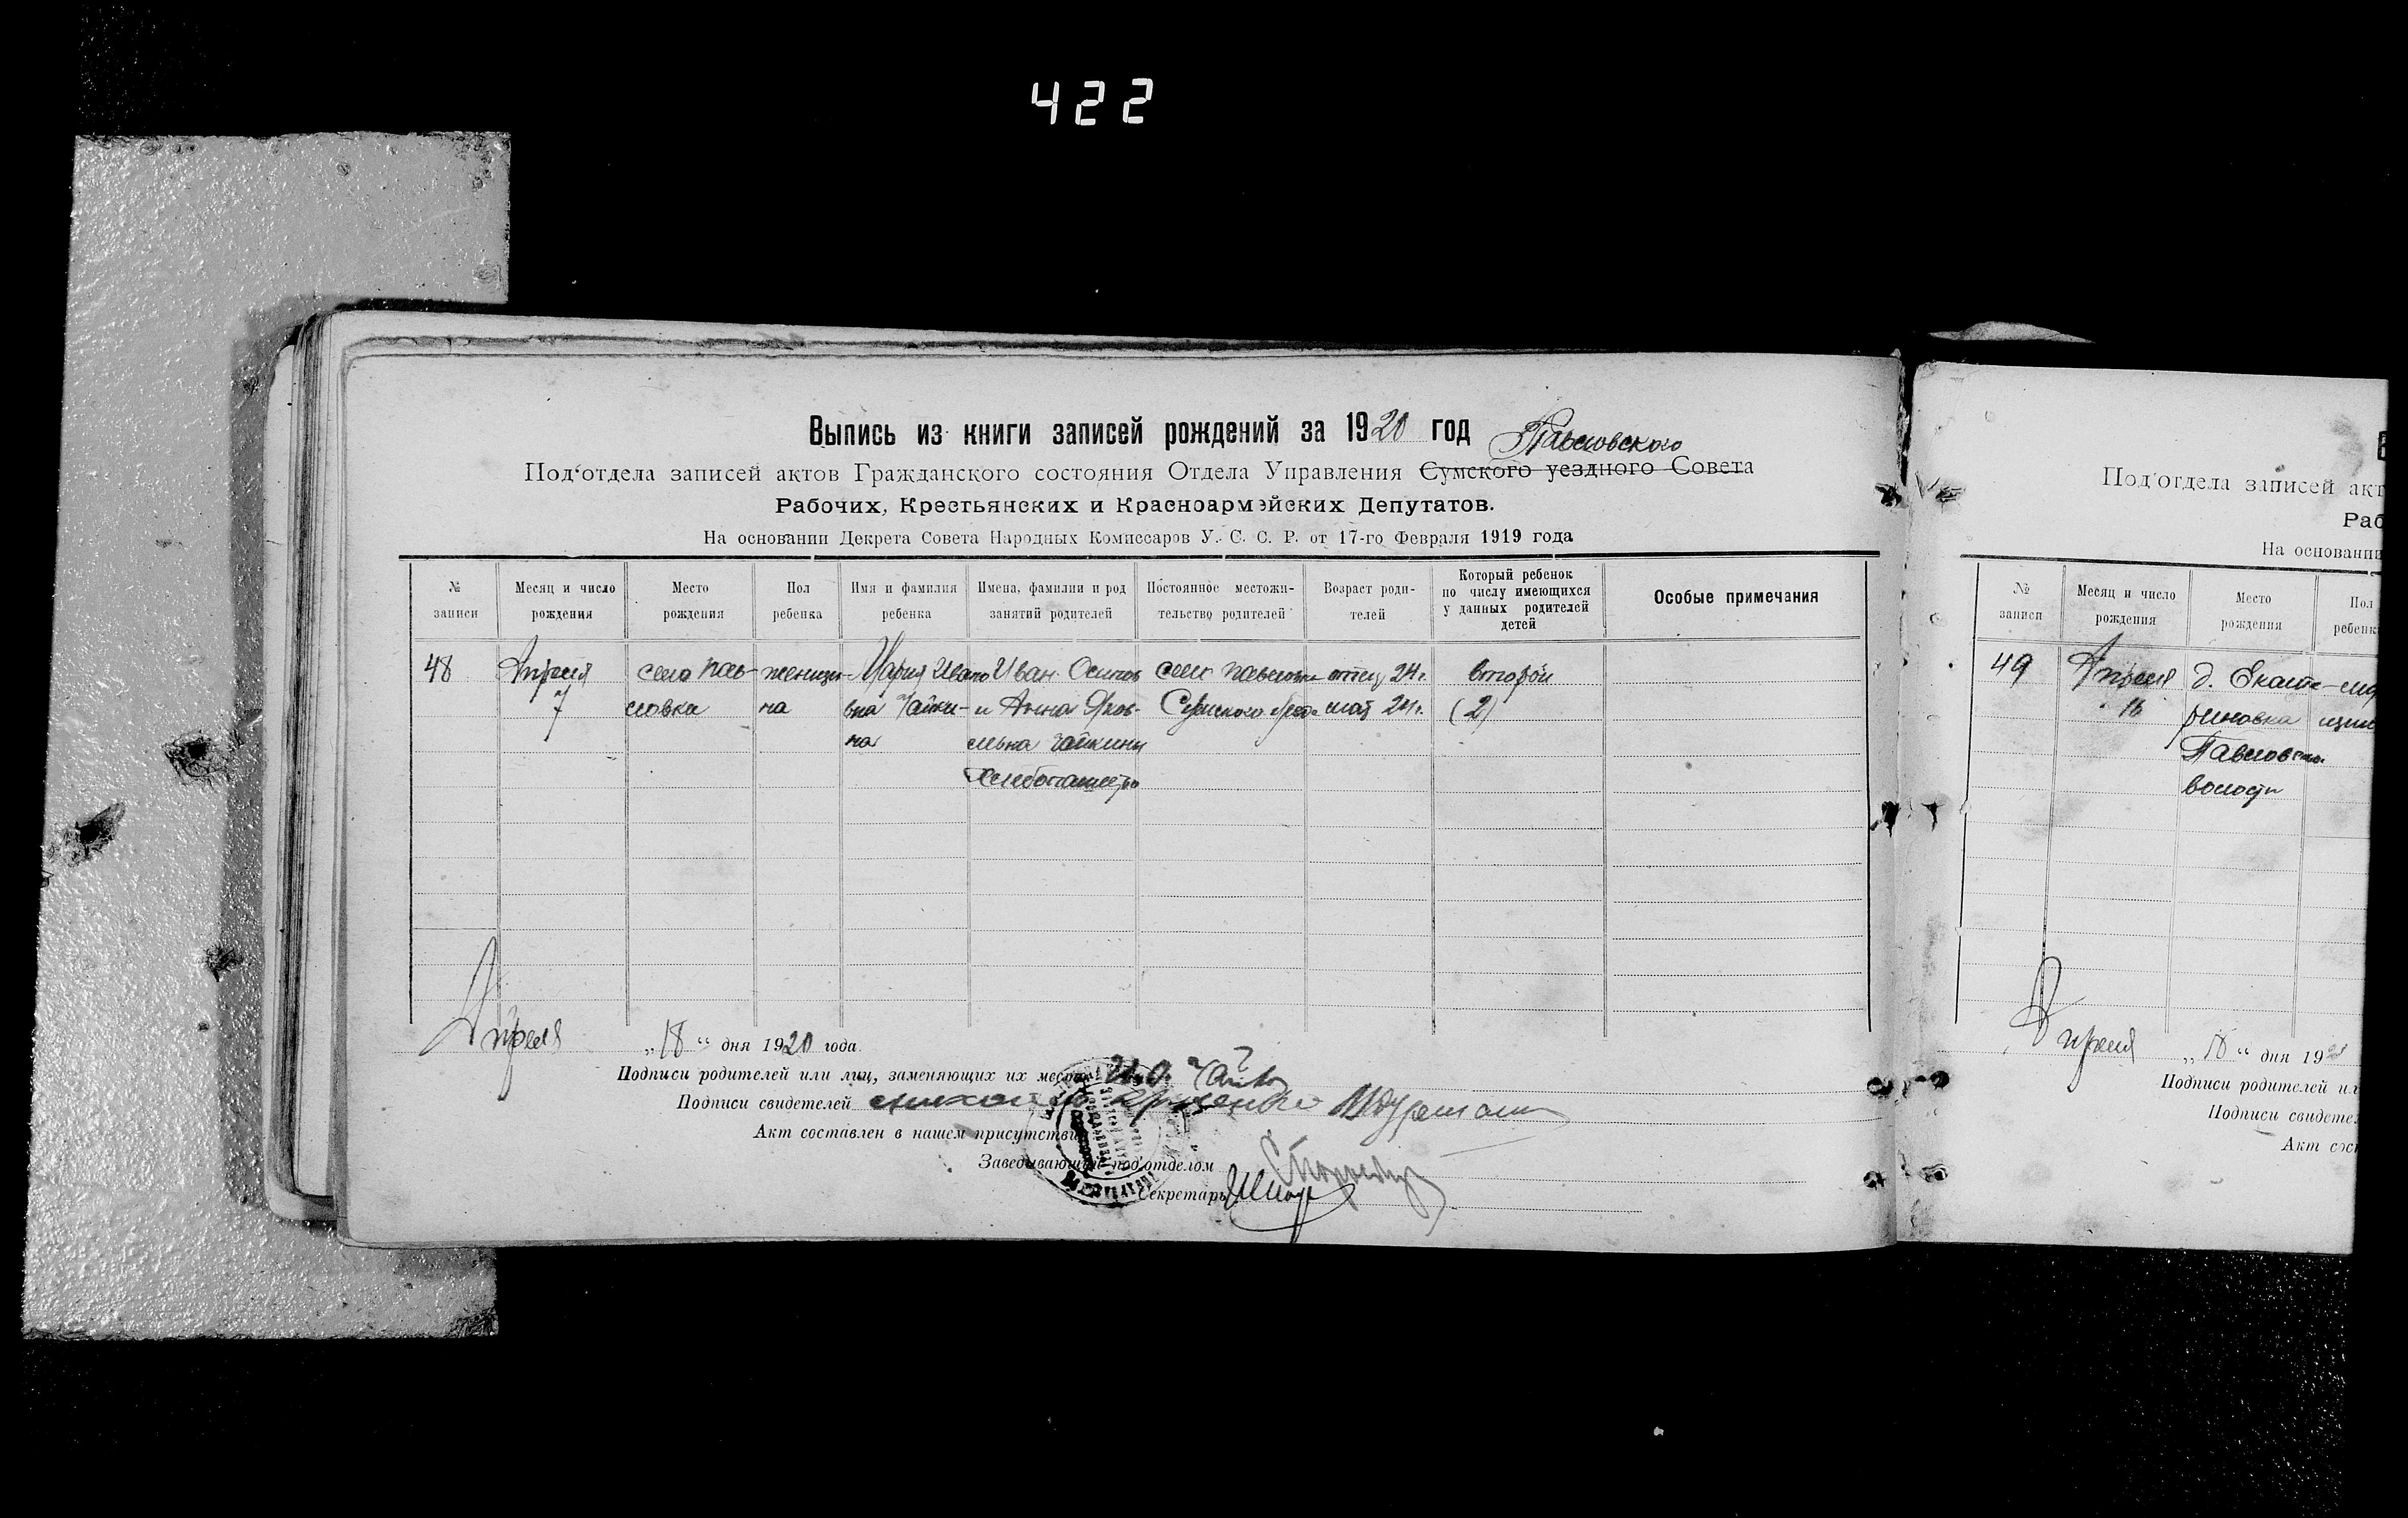 422
Выпись из книги записей рождений за 1920 год Павловского
Под'отдела записей актов Гражданского состояния Отдела Управления Сумского уездного Совета
Рабочих, Крестьянских и Красноармейских Депутатов.
На основании Декрета Совета Народных Комиссаров У. С. С. Р. от 17-го Февраля 1919 года
№ записи
Месяц и число рождения
Место рождения
Пол ребенка
Имя и фамилия ребенка
Имена, фамилии и род занятий родителей
Постоянное местожительство родителей
Возраст родителей
Который ребенок по числу имеющихся у данных родителей детей
Особые примечания
48 Апреля село Пав- женщи- Мария Ивано Иван Осипов село Павловка отец 24 г. второй
7 ловка на вна Чайки- и Анна Яков- Сумского мат 24 г. (2)
на
льна Чайкины
Хлебопашество
Апреля „18“ дня 1920 года.
Подписи родителей или лиц, заменяющих их место И. О.
Подписи свидетелей
Акт составлен в нашем присутствии
Заведывающий под'отделом
Секретарь
Под'отдела записей акт
Раб
На основании
№ записи
Месяц и число рождения
Место рождения
Пол ребенк
49 Апреля д. Екате-
16 риновка
Павловской
волости
Апреля „18“ дня 19
Подписи родителей ил
Подписи свидетел
Акт сост